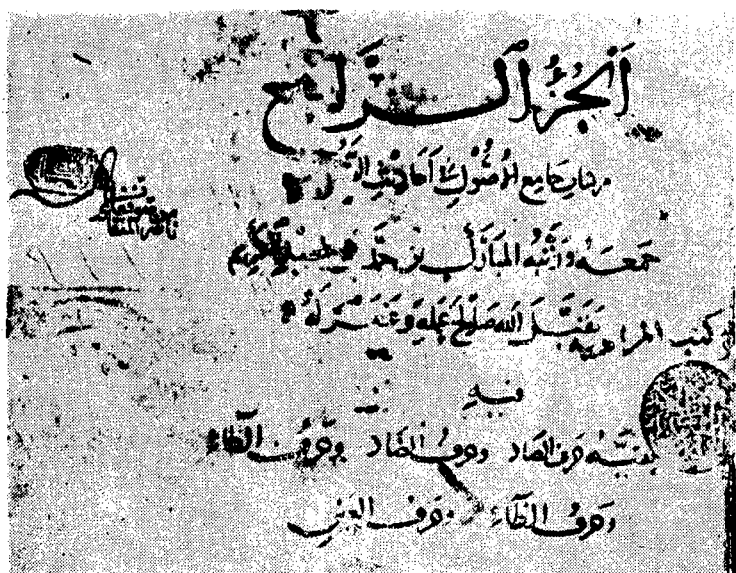 الجُزْءُ الرَّابِع
من كتاب جامع الأصول في أحاديث الرسول
جمعه وألفه المبارك بن محمد بن عبد الكريم
تقبل الله صالح عمله وغفر زلله
فيه
بقية حرف الصاد وحرف الضاد وحرف الطاء
وحرف الظاء وحرف العين
من كتب